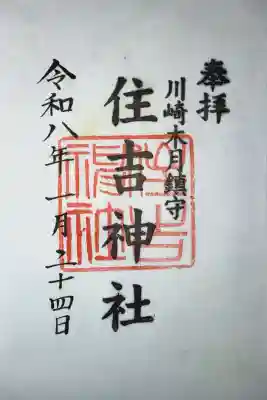 奉拝
川崎木月鎮守
住吉神社
令和八年一月二十四日
住吉神社